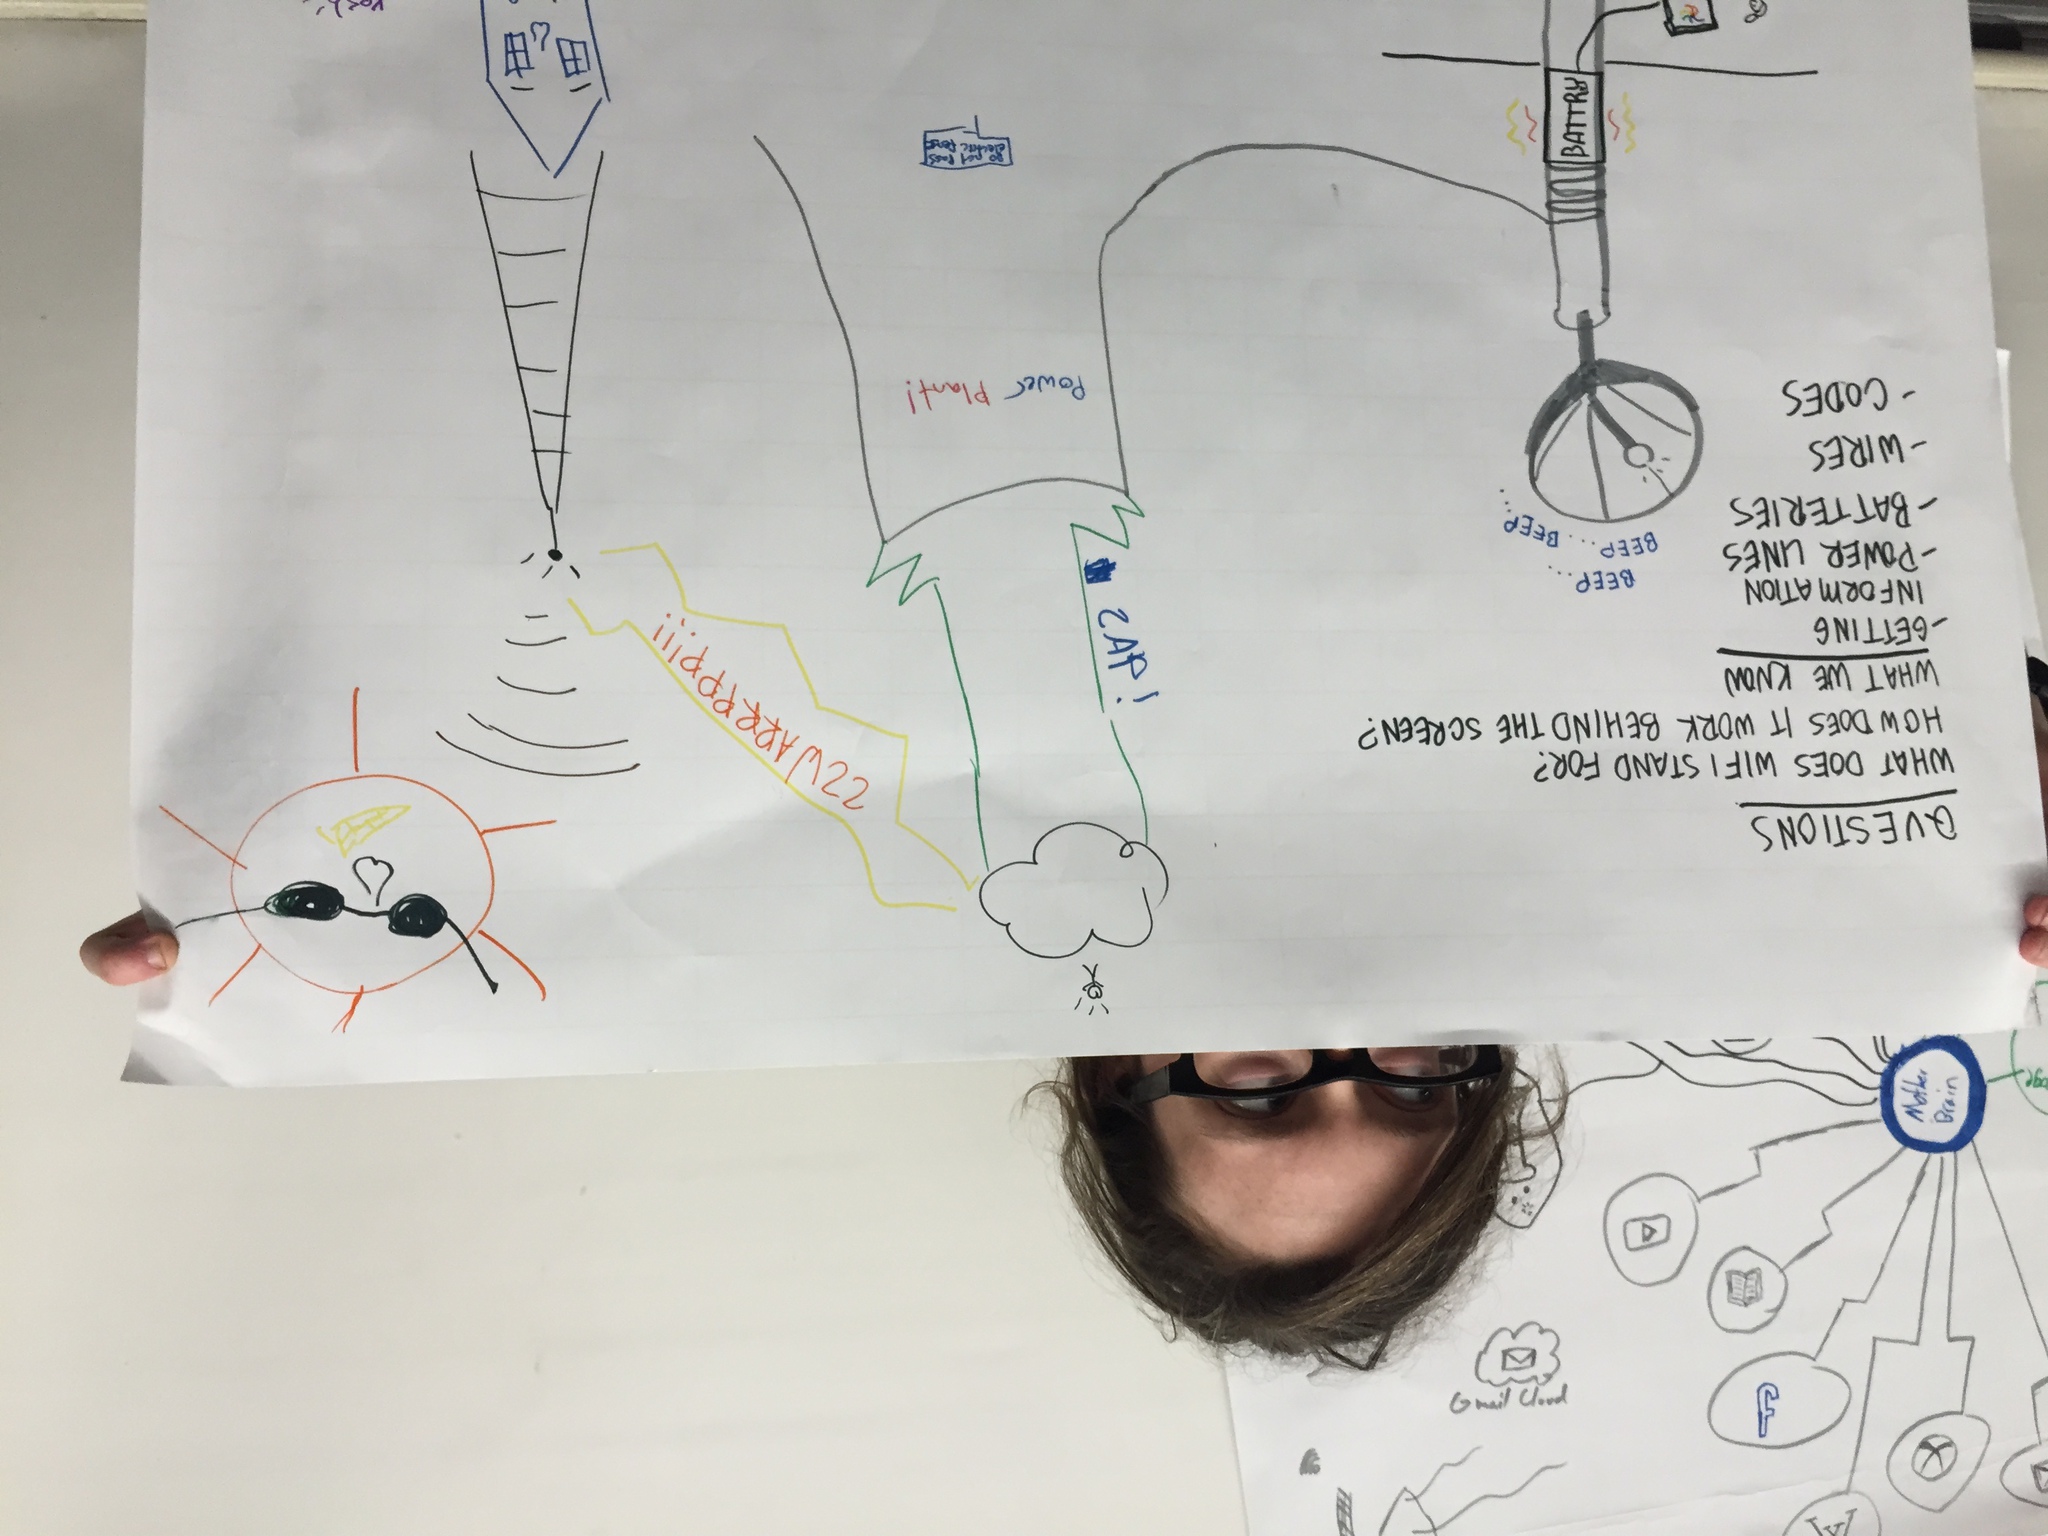 Gmail Cloud
Mother
Brain
QUESTIONS
WHAT DOES WIFI STAND FOR?
HOW DOES IT WORK BEHIND THE SCREEN?
WHAT WE KNOW
-GETTING
INFORMATION
-POWER LINES
-BATTERIES
-WIRES
-CODES
BEEP...
BEEP... BEEP...
BATTRY
ZAP!
ZZWARRPPP!!!
Power Plant!
do not pass
electric